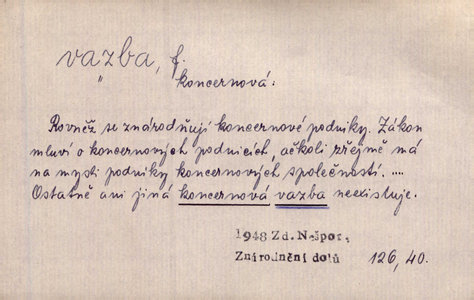 vazba, f.
koncernová:
Rovněž se znárodňují koncernové podniky. Zákon
mluví o koncernových podnicích, ačkoli zřejmě má
na mysli podniky koncernových společností. ....
Ostatně ani jiná koncernová vazba neexistuje.
1948 Zd. Nešpor,
Znárodnění dolů 126, 40.